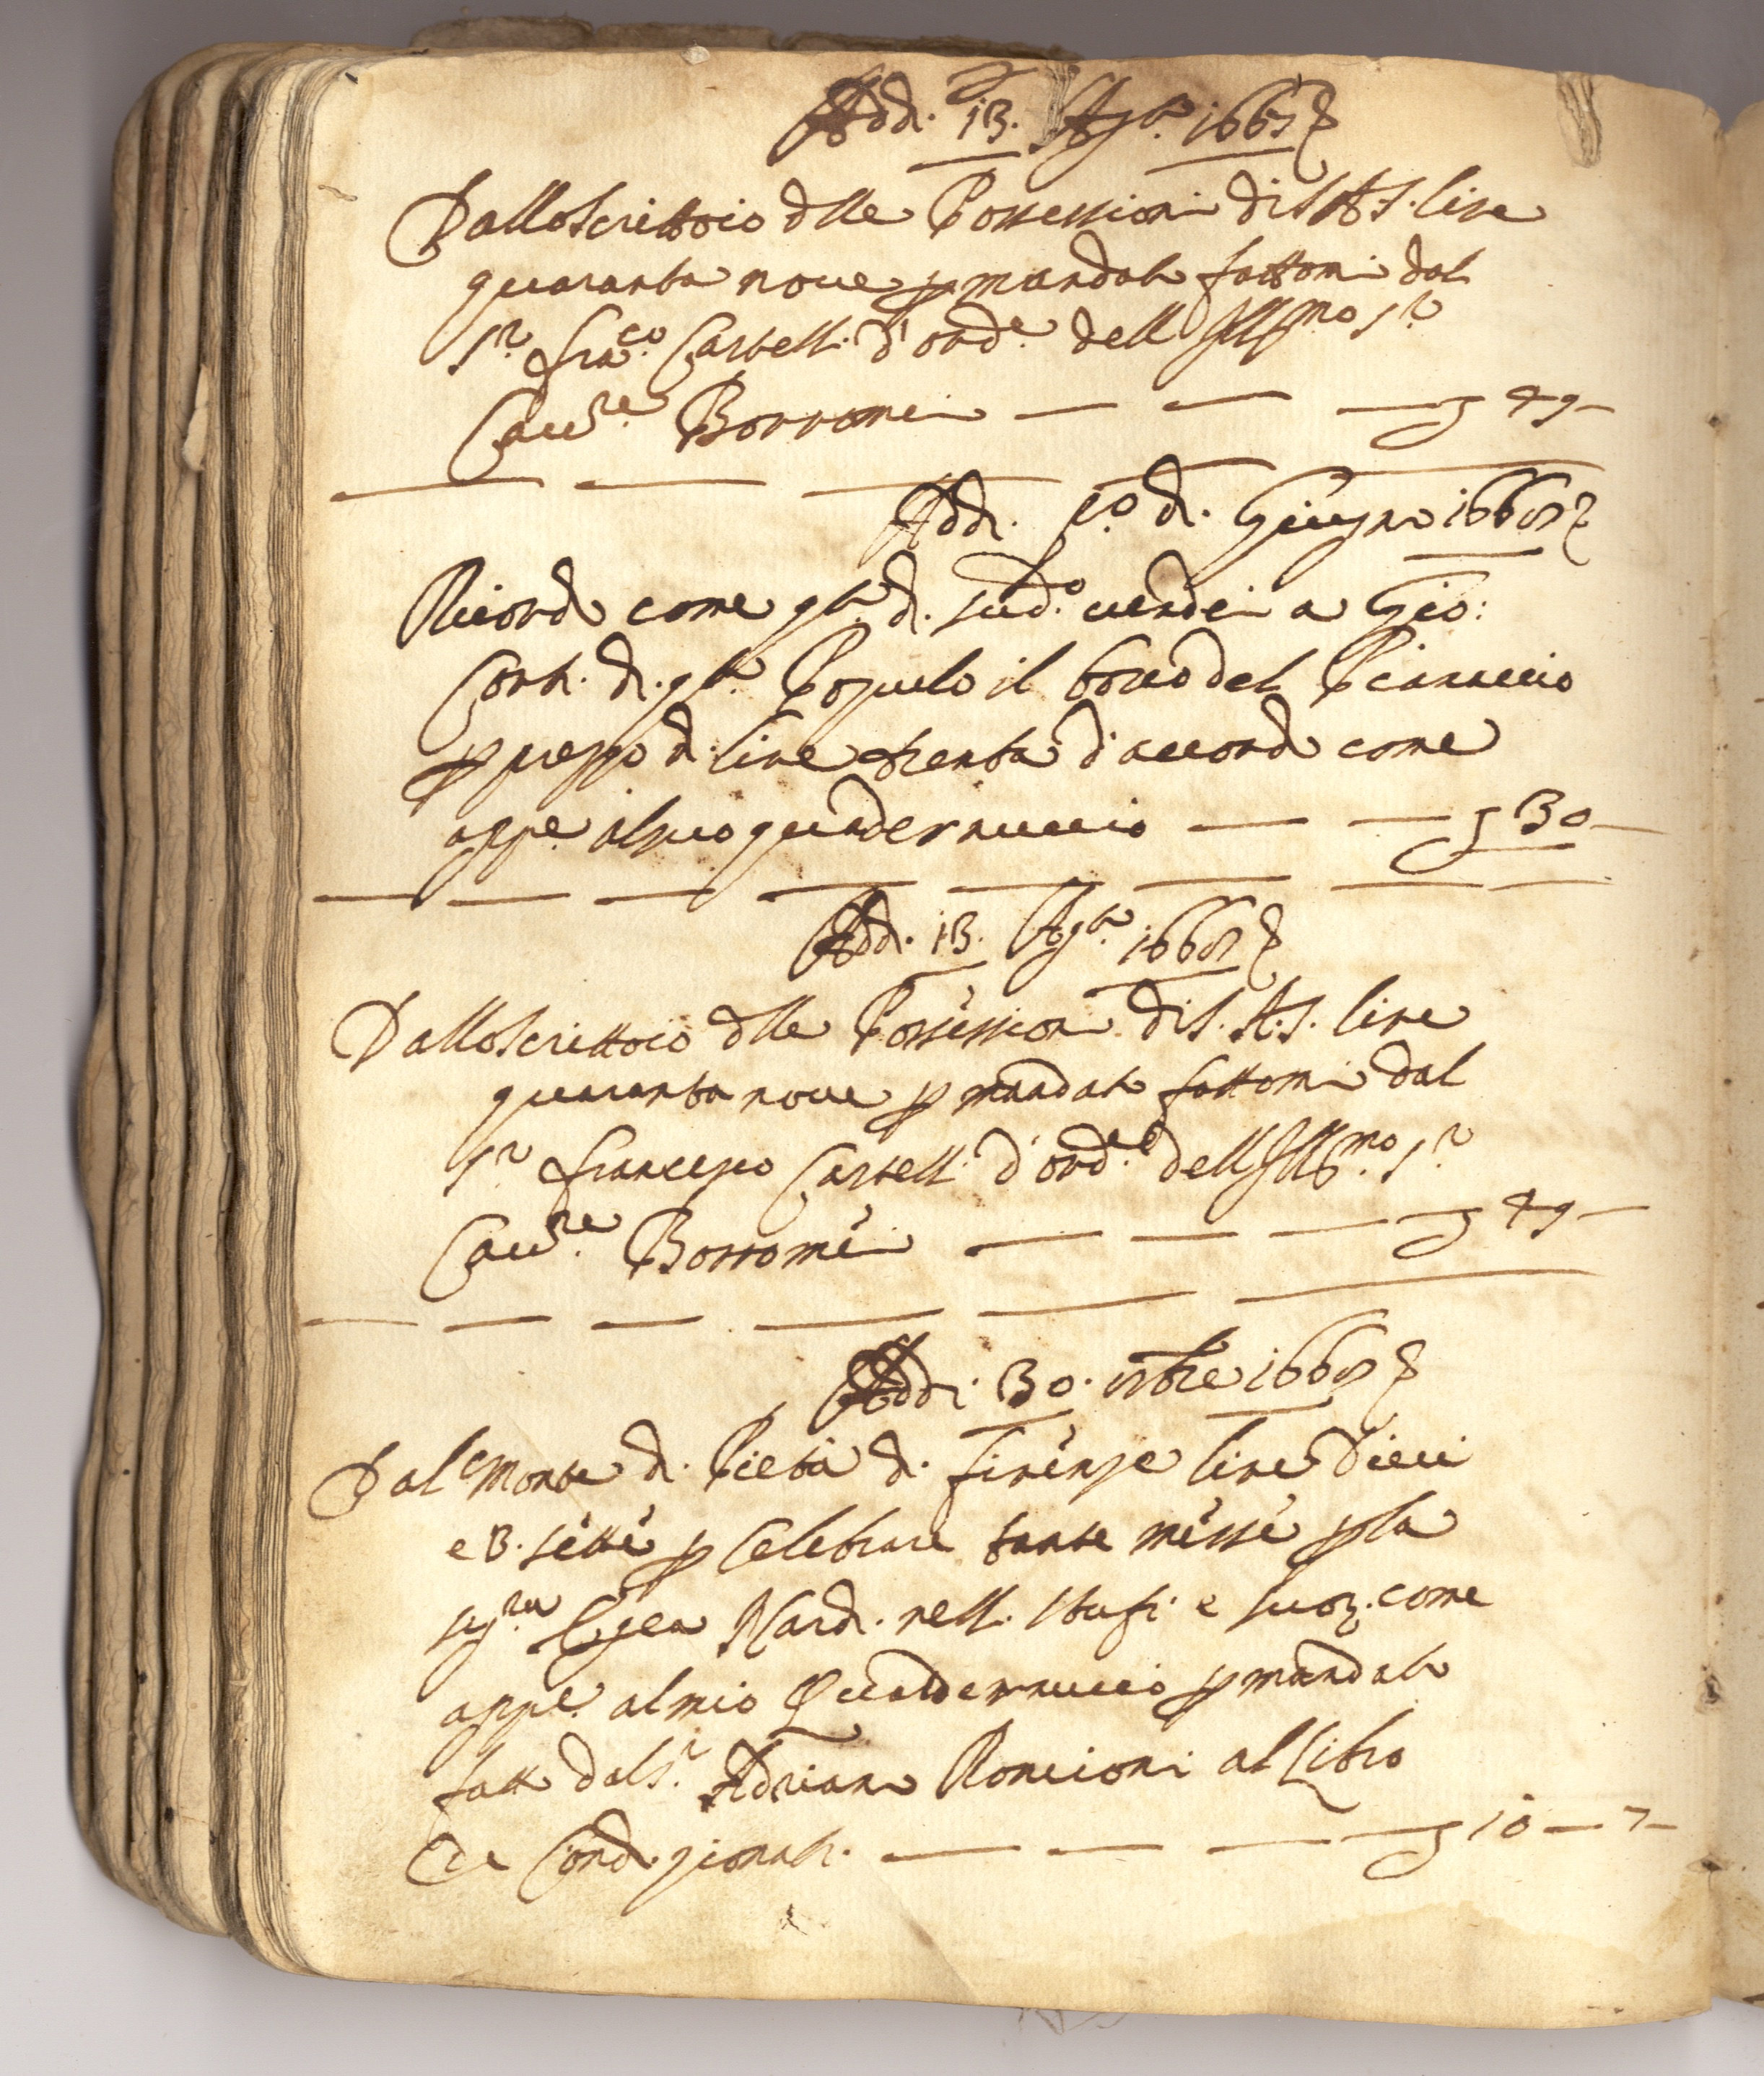 Addi. 13. Agto. 1665
Dallo Scrittoio dlle Possessioni di S A S. lire
quaranta noue p mandato fattomi dal
Sr. franco. Castelli. d'orde. dell Illmo Sr.
Caure. Borromei — — — 49 —
Addi. po. di. Giugno 1667
Ricordo come qto. di. sudo. uendei a Gio:
Conti. di. qto. Popolo il bosco del Pianuccio
p prezzo di. lire trenta d'accordo come
appe. al mio quadernuccio — — 30 —
Addi. 13. Agto. 1667
Dallo Scrittoio dlle Possessioni di S. A. S. lire
quaranta noue p mandato fattomi dal
Sr. francesco Castelli. d'orde. dell Illmo. Sr.
Caure. Borromei — — — — 49 —
Addi. 30. 1667
Dal Monte di. Pietà di. firenze lire dieci
e 13. sette p Celebrare tante messe p la
sigra. Nardi. nell. Stufi. e come
appe. al mio Quadernuccio p mandato
fatto dal Sr. Adriano Roncioni al Libro
de Condizionati. — — — — 10 — 7 —